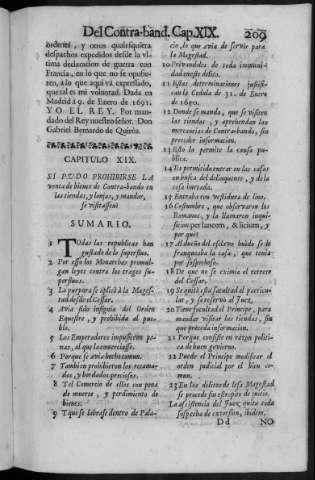 Del Contra-band. Cap. XIX. 209
ordenes, y otras qualesquiera
despachos expedidos desde la vl-
tima declaracion de guerra con
Francia, en lo que no se opusie-
ren, à lo que aqui vâ expresado,
que tal es mi voluntad. Dada en
Madrid à 9. de Enero de 1691.
YO EL REY. Por man-
dado del Rey nuestro señor. Don
Gabriel Bernardo de Quiròs.
CAPITULO XIX.
SI PUDO PROHIBIRSE LA
venta de bienes de Contra-bando en
las tiendas, y lonjas, y mandar,
se visitassen?
SUMARIO.
1 Todas las republicas han
gustado de lo superfluo.
2 Por esso los Monarchas promul-
gan leyes contra los trages su-
perfluos.
3 La purpura se aplicò à la Mages-
tad desde el Cesar.
4 Avia sido insignia del Orden
Equestre, y prohibida al pue-
blo.
5 Los Emperadores impusieron pe-
nas, al que la comerciasse.
6 Porque se avia hecho comun.
7 Tambien prohibieron los recama-
dos, y bordados preciosos.
8 Tal Comercio de ellos con pena
de muerte, y perdimento de
bienes.
9 Y que se labrasse dentro de Pala-
cio, lo que avia de servir para
la Magestad.
10 Privandoles de toda immuni-
dad en este delito.
11 Estas determinaciones justifi-
can la Cedula de 31. de Enero
de 1650.
12 Donde se manda, que se visiten
las tiendas, y aprehendan las
mercancias de Contra-bando, sin
preceder informacion.
13 Esto lo permite la causa pu-
blica.
14 Es permitido entrar en las casas
en busca del delinquente, y de la
cosa hurtada.
15 Entraban con vestidura de lino.
16 Costumbre, que observaron los
Romanos, y la llamaron inqui-
sicion per lancem, & licium, y
por què?
17 Al dueño del esclavo huido se le
franqueaba la casa, que tenia
por sospechosa.
18 De que no se eximia el retrete
del Cessar.
19 Se quitò esta facultad al particu-
lar, y se reservò al Juez.
20 Tiene facultad el Principe, para
mandar visitar las tiendas, sin
que preceda informacion.
21 Porque consiste en razon politi-
ca de buen govierno.
22 Puede el Principe modificar el
orden judicial por el bien co-
mun.
23 En los delitos de lesa Magestad
se procede sin estrepito de juicio.
La assistencia del Juez, quita toda
sospecha de extorsion, ibidem.
Dd NO